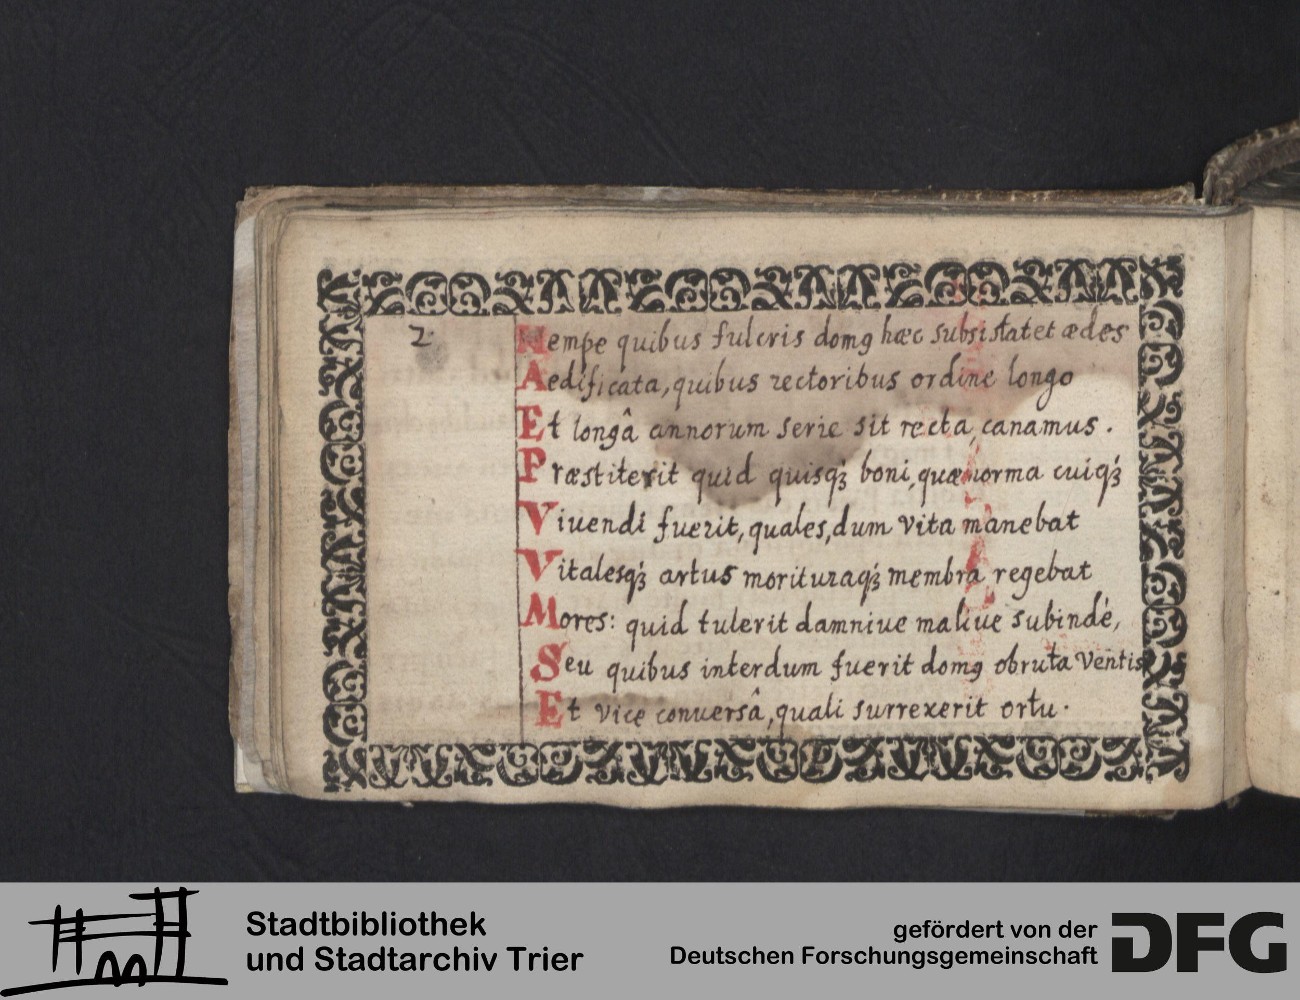 2.
Nempe quibus fulcris domꝯ hæc subsistat et ædes
Aedificata, quibus rectoribus ordine longo
Et longâ annorum serie sit recta, canamus.
Præstiterit quid quisqꝫ boni, quæ norma cuiqꝫ
Viuendi fuerit, quales, dum vita manebat
Vitalesqꝫ artus morituraqꝫ membra regebat
Mores: quid tulerit damniue maliue subindè,
Seu quibus interdum fuerit domꝯ obruta Ventis
Et vice conuersâ, quali surrexerit ortu.
Stadtbibliothek
und Stadtarchiv Trier
gefördert von der
Deutschen Forschungsgemeinschaft
DFG